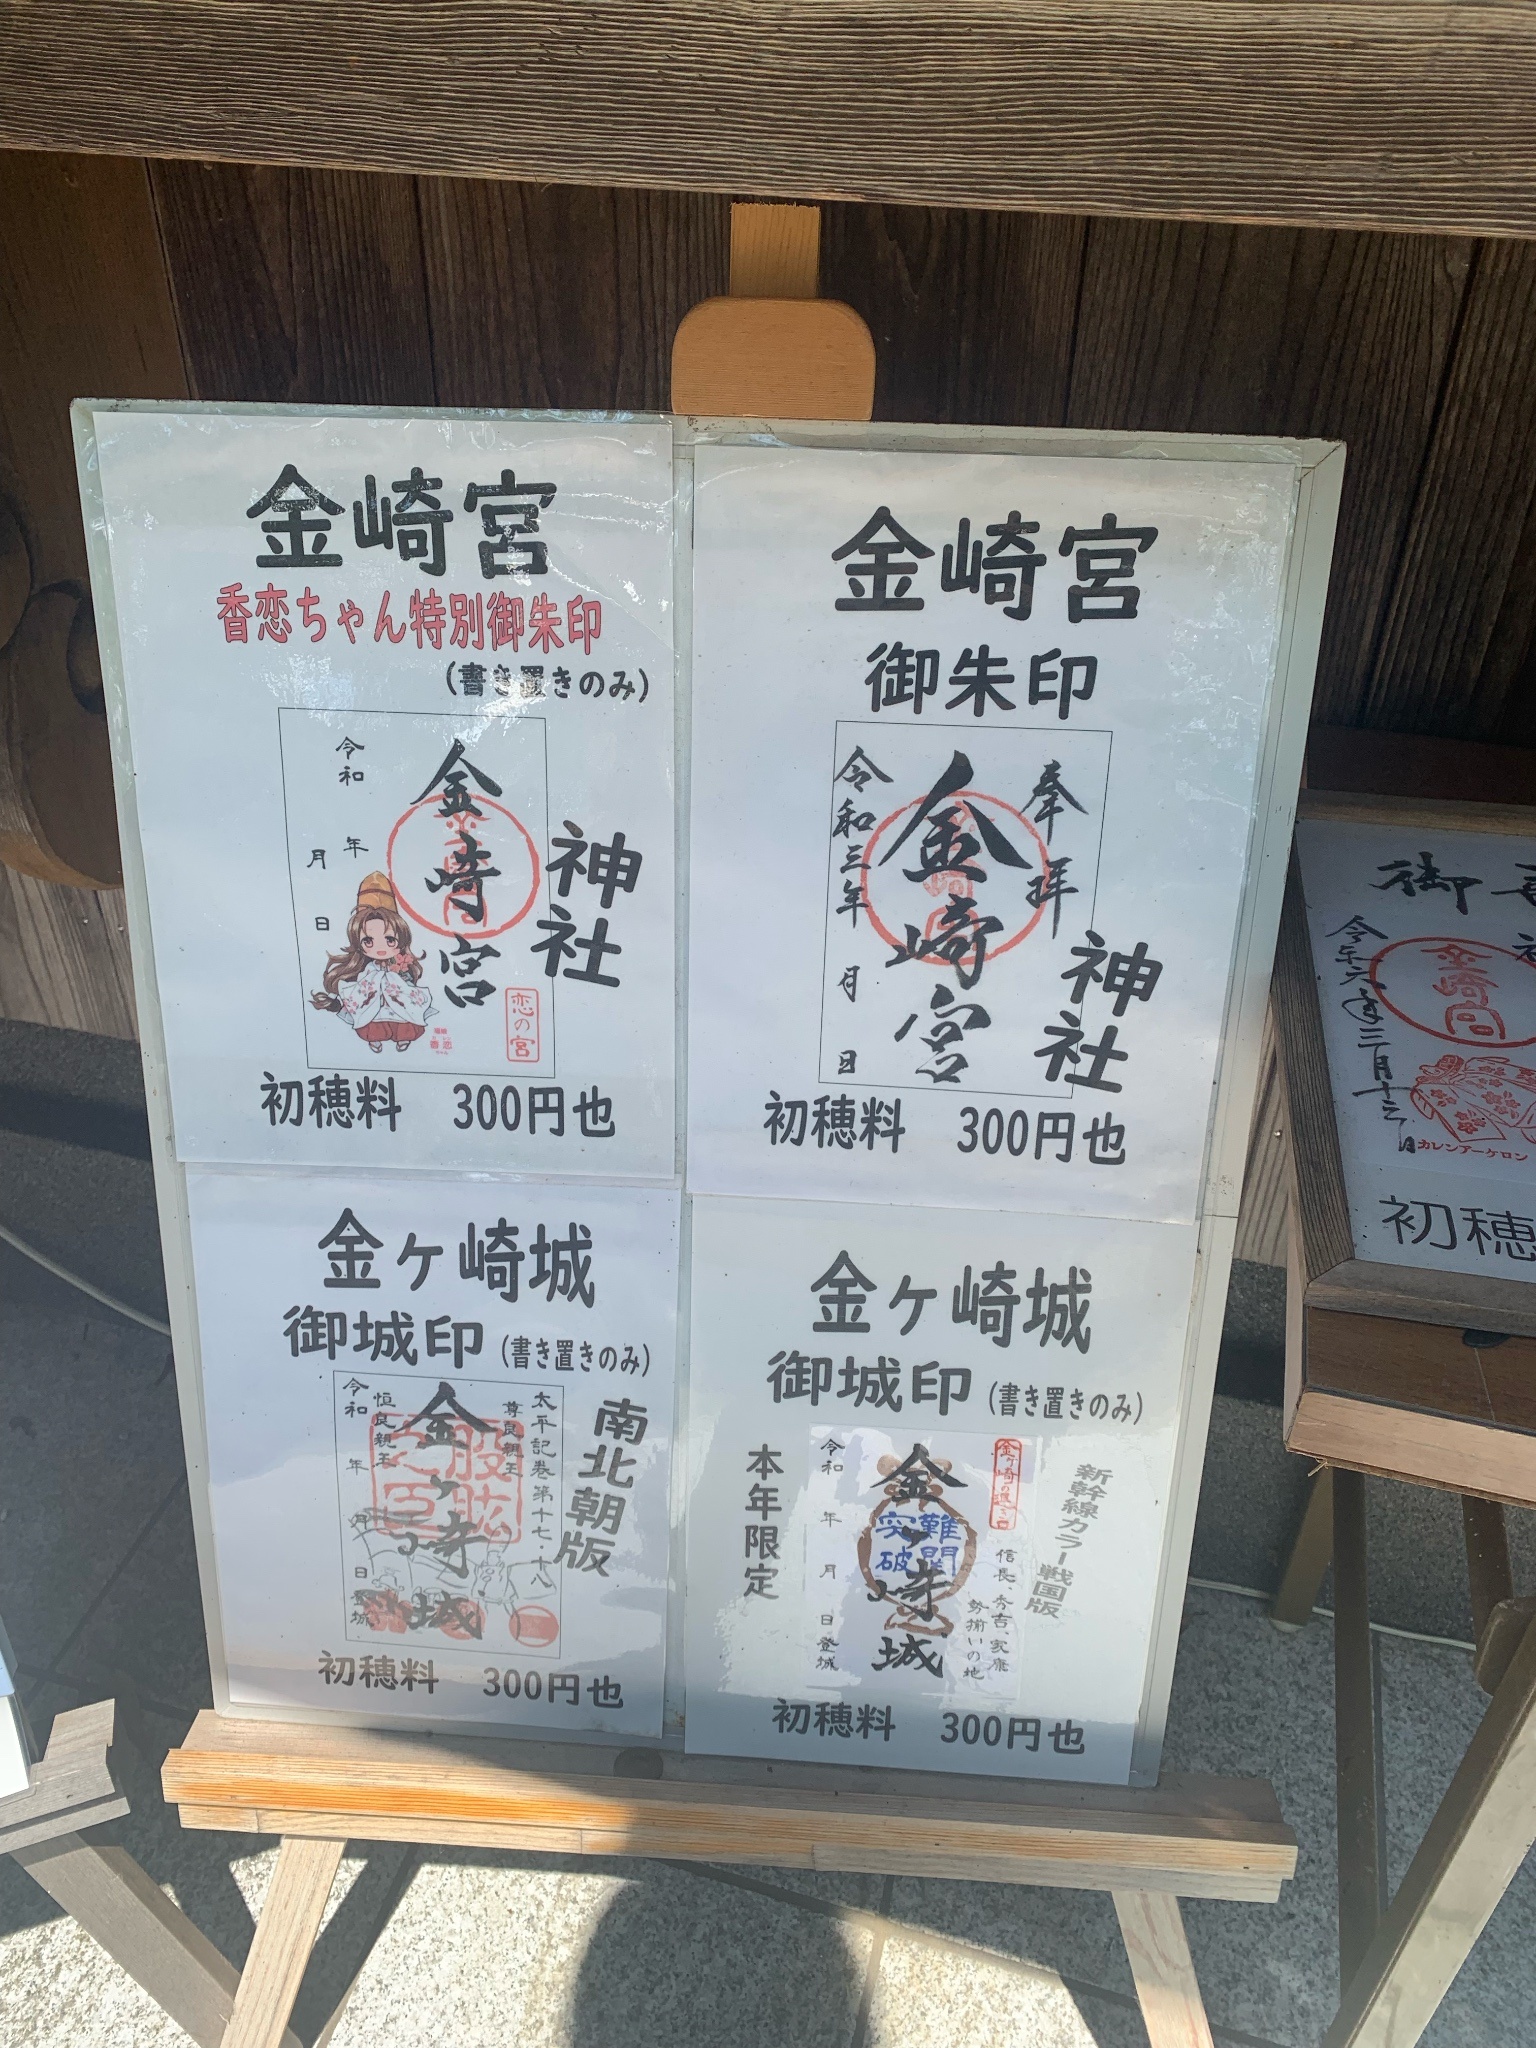 金崎宮
香恋ちゃん特別御朱印
(書き置きのみ)
金崎宮
令和 年 月 日
恋の宮
神社
初穂料 300円也
金崎宮
御朱印
奉拝
金崎宮
令和三年 月 日
神社
初穂料 300円也
金ヶ崎城
御城印 (書き置きのみ)
南北朝版
太平記巻第十七・十八
尊良親王
金ヶ崎城
股肱之臣
恒良親王
令和 年 月 日登城
初穂料 300円也
金ヶ崎城
御城印 (書き置きのみ)
新幹線カラー戦国版
金ヶ崎の退き口
信長、秀吉、家康
勢揃いの地
金ヶ崎城
難関突破
令和 年 月 日登城
本年限定
初穂料 300円也
御
金崎宮
令和六年三月十三日
カレンアーケロン
初穂